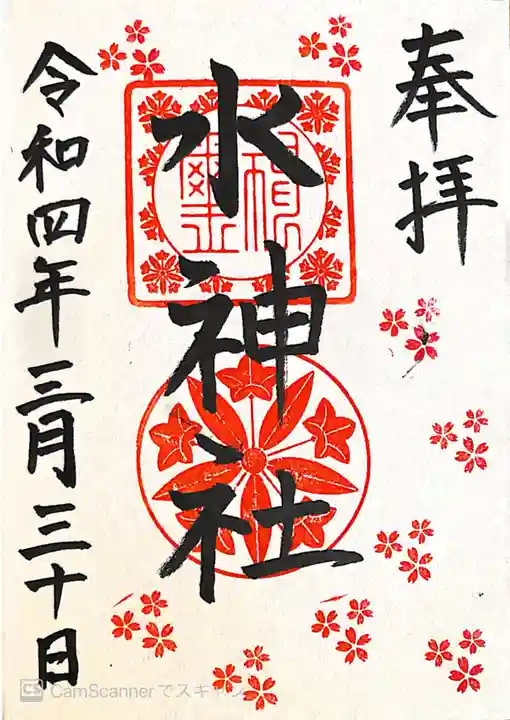 奉拝
水神社
令和四年三月三十日
CS CamScannerでスキャン